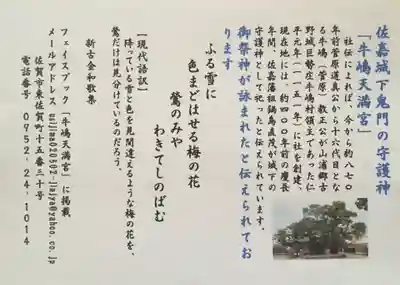 佐嘉城下鬼門の守護神
「牛嶋天満宮」
社伝によれば、今から約八七〇
年前菅原道真公から十六代目とな
る牛嶋(菅原)大教正公が山浦郷古
野城巨勢庄牛嶋村領主であった仁
平元年(一一五一年)に社を創建、
現在地には、約四〇〇年前の慶長
年間、佐嘉藩祖鍋島直茂が城下の
守護神として祀ったと伝えられています。
御祭神が詠まれたと伝えられてお
ります
ふる雪に
色まどはせる梅の花
鶯のみや
わきてしのばむ
【現代語訳】
降っている雪と色を見間違えるような梅の花を、
鶯だけは見分けているのだろう。
新古今和歌集
フェイスブック「牛嶋天満宮」に掲載
メールアドレス usijima020602-jinjya@yahoo.co.jp
佐賀市東佐賀町十五番三十号
電話番号 0952-24-1014